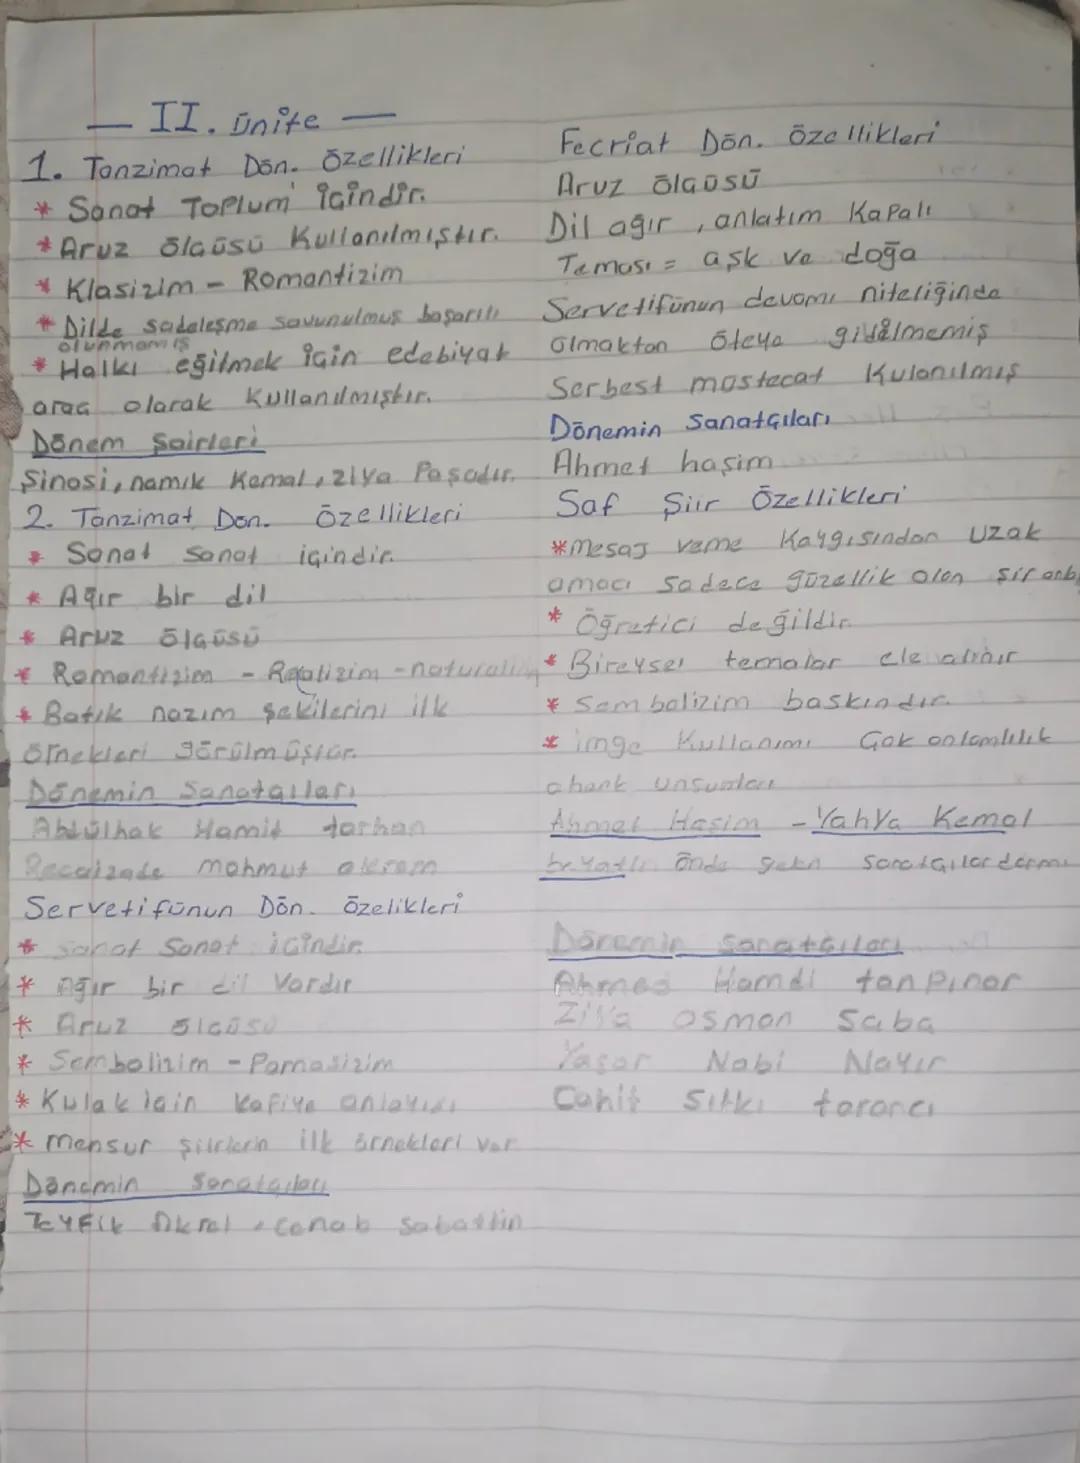 — II. ünite —
1. Tanzimat Dön. Özellikleri
* Sanat Toplum içindir.
* Aruz ölçüsü Kullanılmıştır.
* Klasizim - Romantizim
* Dilde sadeleşme savunulmuş başarılı
olunmamış
* Halkı eğitmek için edebiyat
araç olarak Kullanılmıştır.
Dönem Şairleri
Şinasi, namık Kemal, ziya Paşadır.
2. Tanzimat Dön. Özellikleri
* Sanat Sanat içindir.
* Ağır bir dil
* Aruz ölçüsü
* Romantizim - Realizim - naturalizm
* Batık nazım şekilerini ilk
örnekleri görülmüştür.
Dönemin Sanatçıları
Abdülhak Hamit tarhan
Recaizade mahmut ekrem
Servetifünun Dön. Özelikleri
* sanat Sanat içindir.
* Ağır bir dil Vardır
* Aruz ölçüsü
* Sembolizim - Parnasizim
* Kulak için Kafiye anlayışı
* mensur şiirlerin ilk örnekleri var
Dönemin Sanatçıları
Teyfik fikret, cenab şabattin
Fecriat Dön. Özellikleri
Aruz ölçüsü
Dil ağır, anlatım Kapalı
Teması = aşk ve doğa
Servetifünun devamı niteliğinde
olmaktan öteye gidilmemiş
Serbest müstezat Kulanılmış
Dönemin Sanatçıları
Ahmet haşim
Saf Şiir Özellikleri
* mesaj verme Kaygısından uzak
amacı sadece güzellik olan şiir
* Öğretici değildir.
* Bireysel temalar ele alınır
* Sembolizim baskındır.
* imge Kullanımı Çok anlamlılık
ahenk unsurları
Ahmet Haşim - Yahya Kemal
beyatlı önde gelen
Dönemin Sanatçıları
Ahmed Hamdi tanpınar
Ziya osman Saba
Yaşar Nabi Nayır
Cahit Sıtkı tarancı